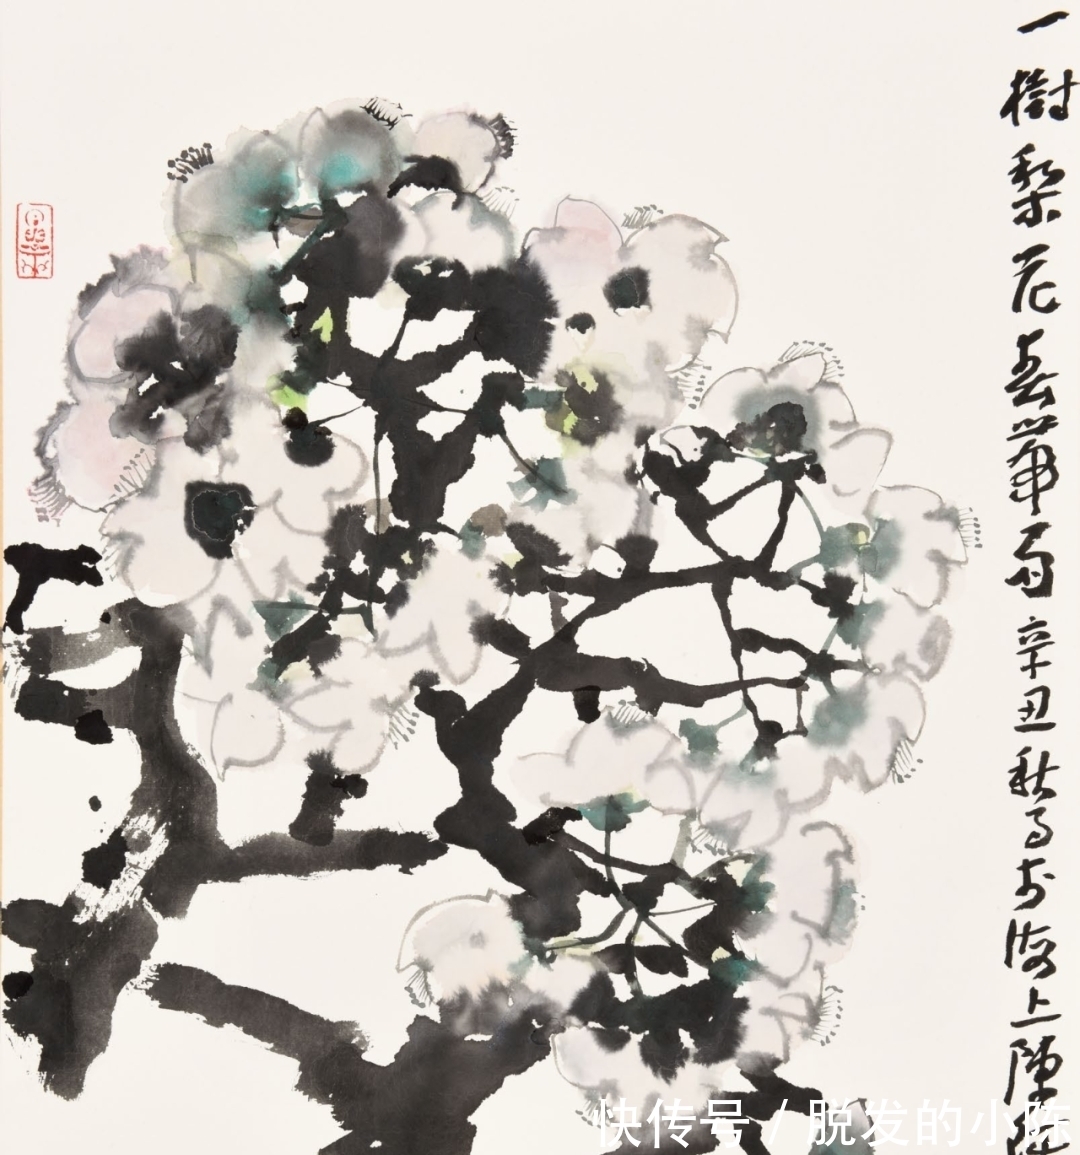 一樹梨花春帶雨 辛丑秋 於海上陳
快传号 / 脱发的小陈